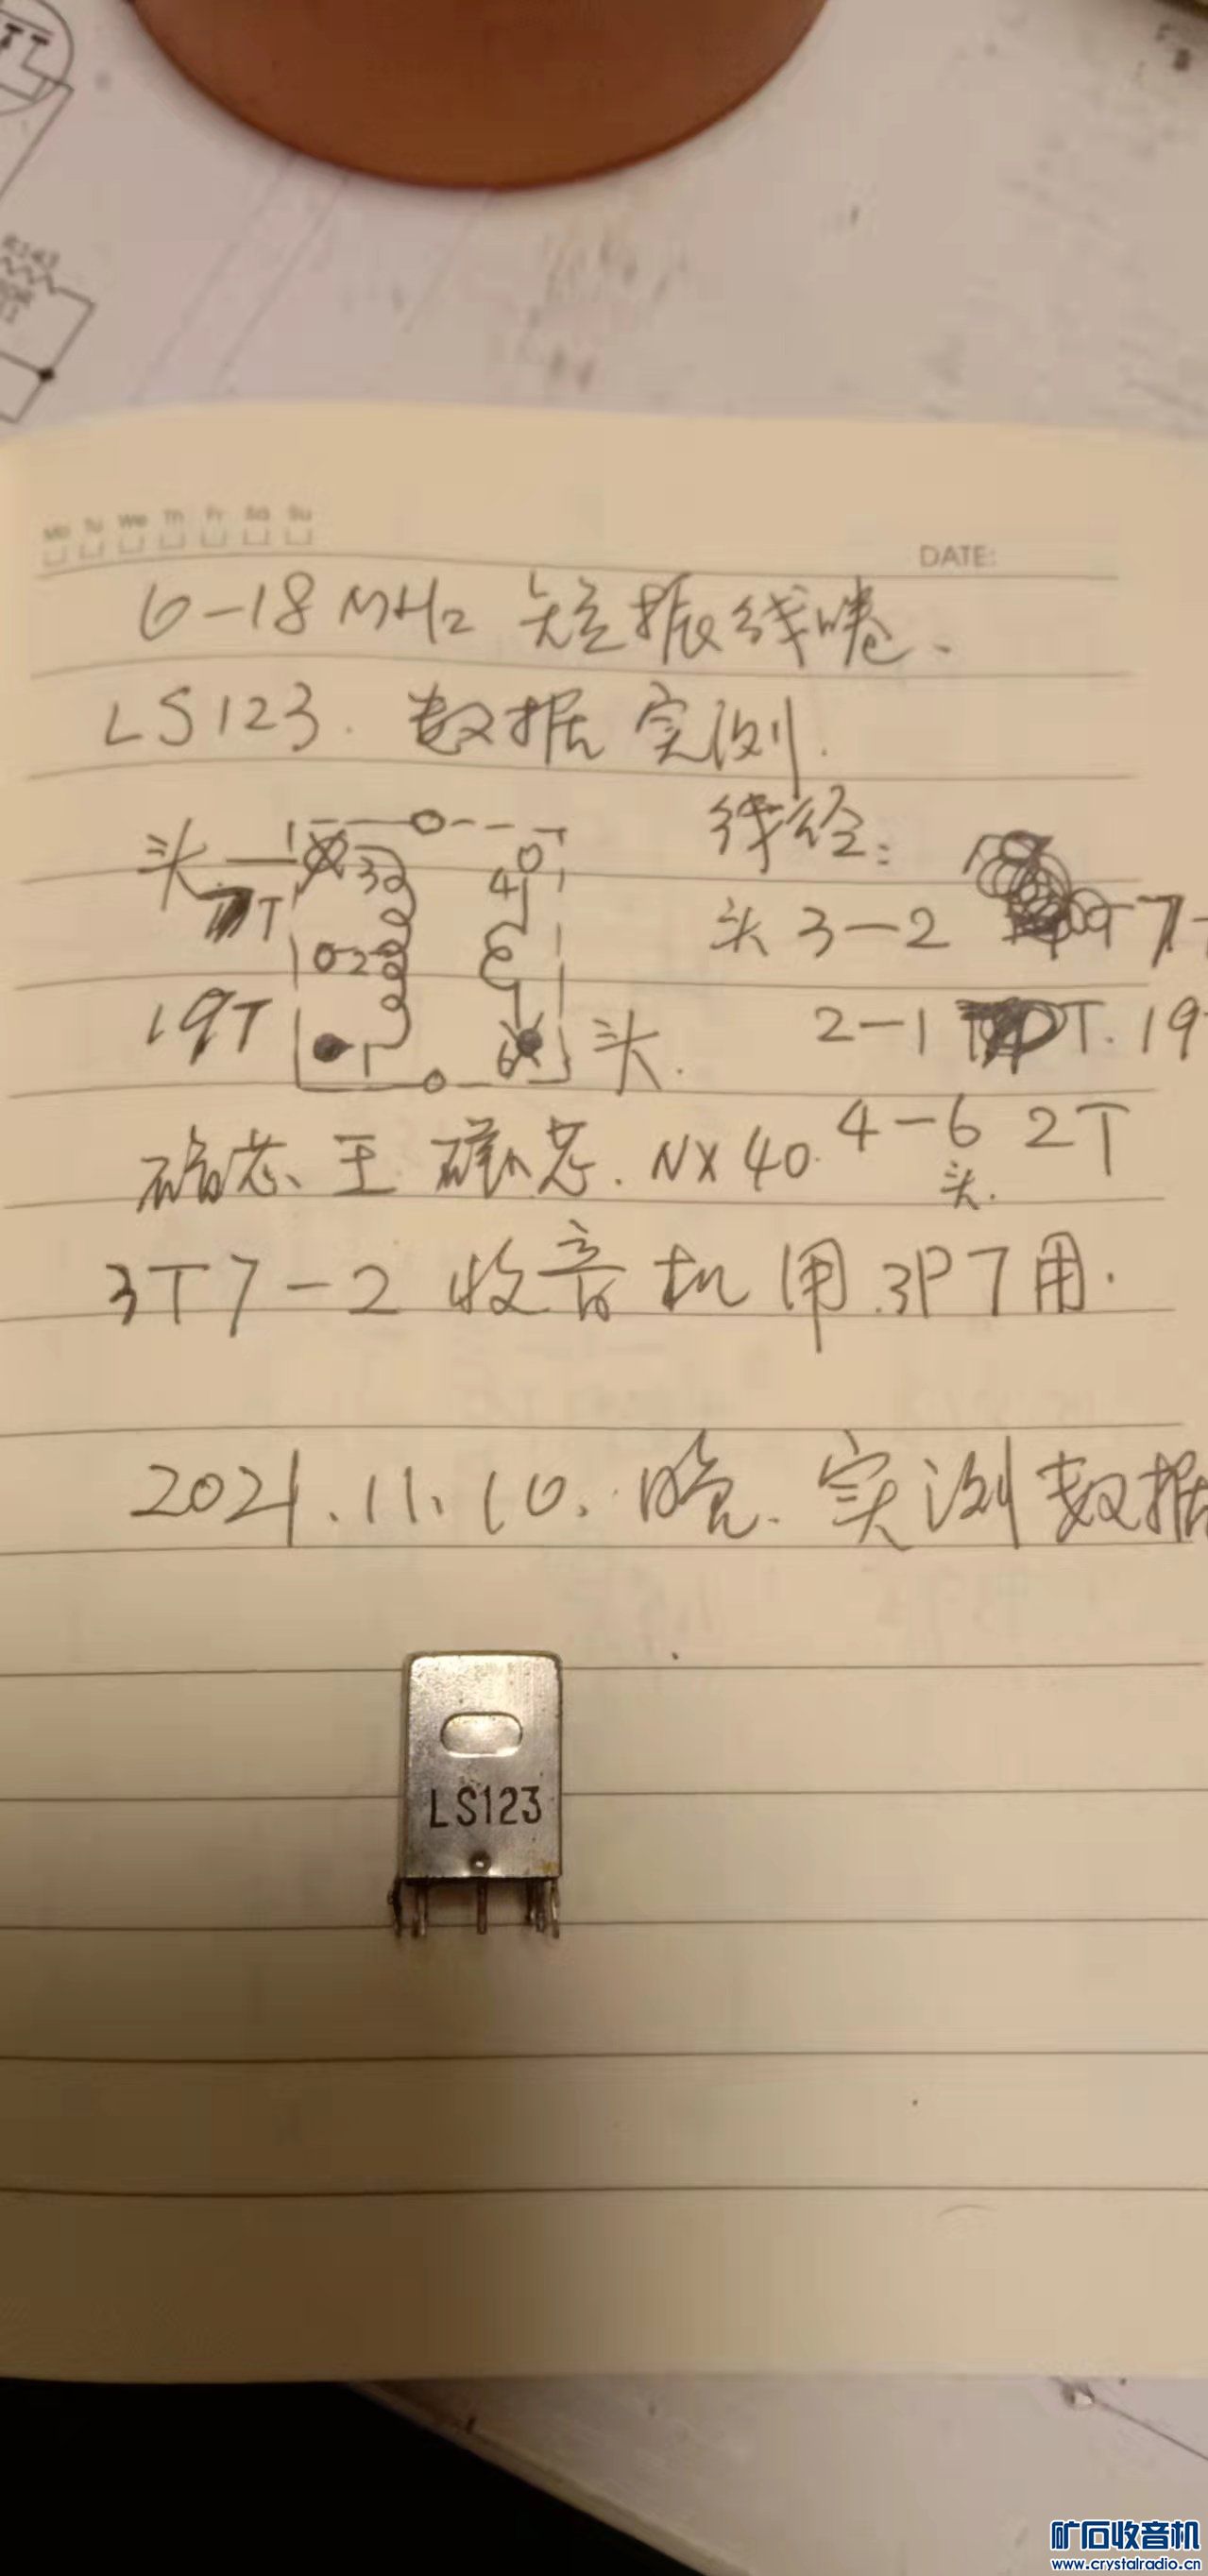 R143
Mo Tu We Th Fr Sa Su
DATE:
6-18MHz 短振线圈、
LS123. 数据实测.
线径:
头 3 4
7T
头 3-2 7
2
19T
1 6 头.
2-1 T. 19
4-6 2T
头.
磁芯、工 磁芯. NX40.
3T7-2 收音机用.3P7用.
2021.11.10. 晚. 实测数据
LS123
矿石收音机
www.crystalradio.cn